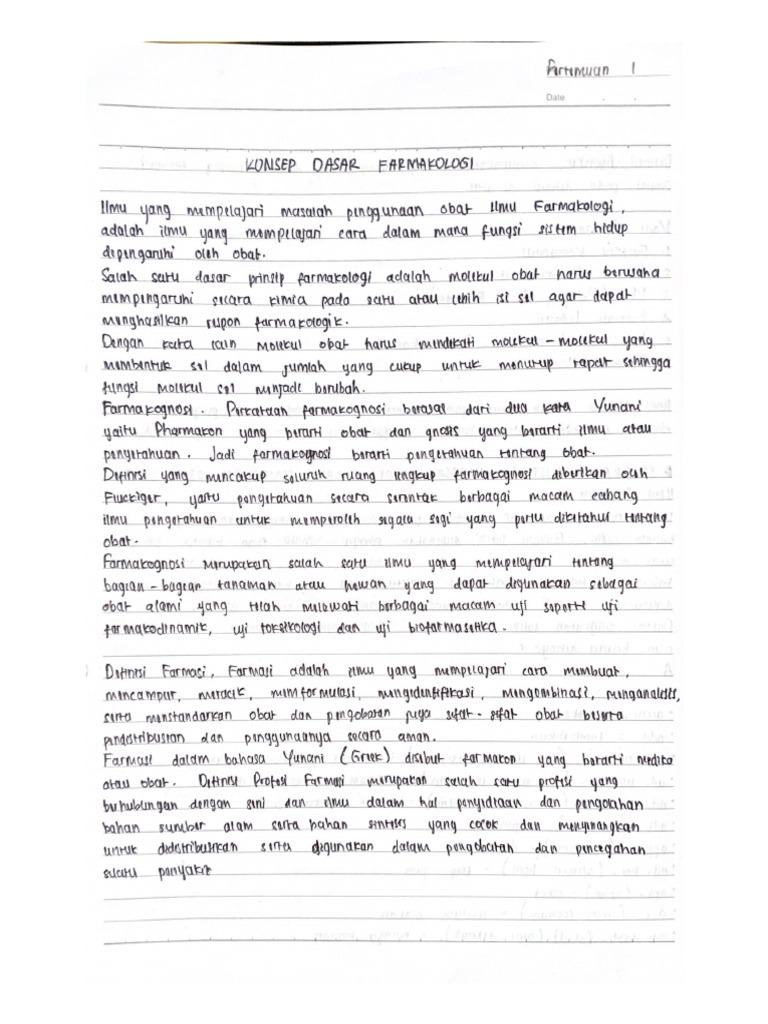 Pertemuan 1
Date . .
KONSEP DASAR FARMAKOLOGI
Ilmu yang mempelajari masalah penggunaan obat Ilmu Farmakologi,
adalah ilmu yang mempelajari cara dalam mana fungsi sistem hidup
dipengaruhi oleh obat.
Salah satu dasar prinsip farmakologi adalah molekul obat harus berusaha
mempengaruhi secara kimia pada satu atau lebih isi sel agar dapat
menghasilkan respon farmakologik.
Dengan kata lain molekul obat harus mendekati molekul-molekul yang
membentuk sel dalam jumlah yang cukup untuk menutup rapat sehingga
fungsi molekul sel menjadi berubah.
Farmakognosi. Perkataan farmakognosi berasal dari dua kata Yunani
yaitu Pharmakon yang berarti obat dan gnosis yang berarti ilmu atau
pengetahuan. Jadi farmakognosi berarti pengetahuan tentang obat.
Definisi yang mencakup seluruh ruang lingkup farmakognosi diberikan oleh
Fluckiger, yaitu pengetahuan secara serentak berbagai macam cabang
ilmu pengetahuan untuk memperoleh segala segi yang perlu diketahui tentang
obat.
Farmakognosi merupakan salah satu ilmu yang mempelajari tentang
bagian-bagian tanaman atau hewan yang dapat digunakan sebagai
obat alami yang telah melewati berbagai macam uji seperti uji
farmakodinamik, uji toksikologi dan uji biofarmasetika.
Definisi Farmasi, Farmasi adalah ilmu yang mempelajari cara membuat,
mencampur, meracik, memformulasi, mengidentifikasi, mengombinasi, menganalisis,
serta menstandarkan obat dan pengobatan juga sifat-sifat obat beserta
pendistribusian dan penggunaanya secara aman.
Farmasi dalam bahasa Yunani (Greek) disebut farmakon yang berarti medika
atau obat. Definisi Profesi Farmasi merupakan salah satu profesi yang
berhubungan dengan seni dan ilmu dalam hal penyediaan dan pengolahan
bahan sumber alam serta bahan sintesis yang cocok dan menyenangkan
untuk didistribusikan serta digunakan dalam pengobatan dan pencegahan
suatu penyakit